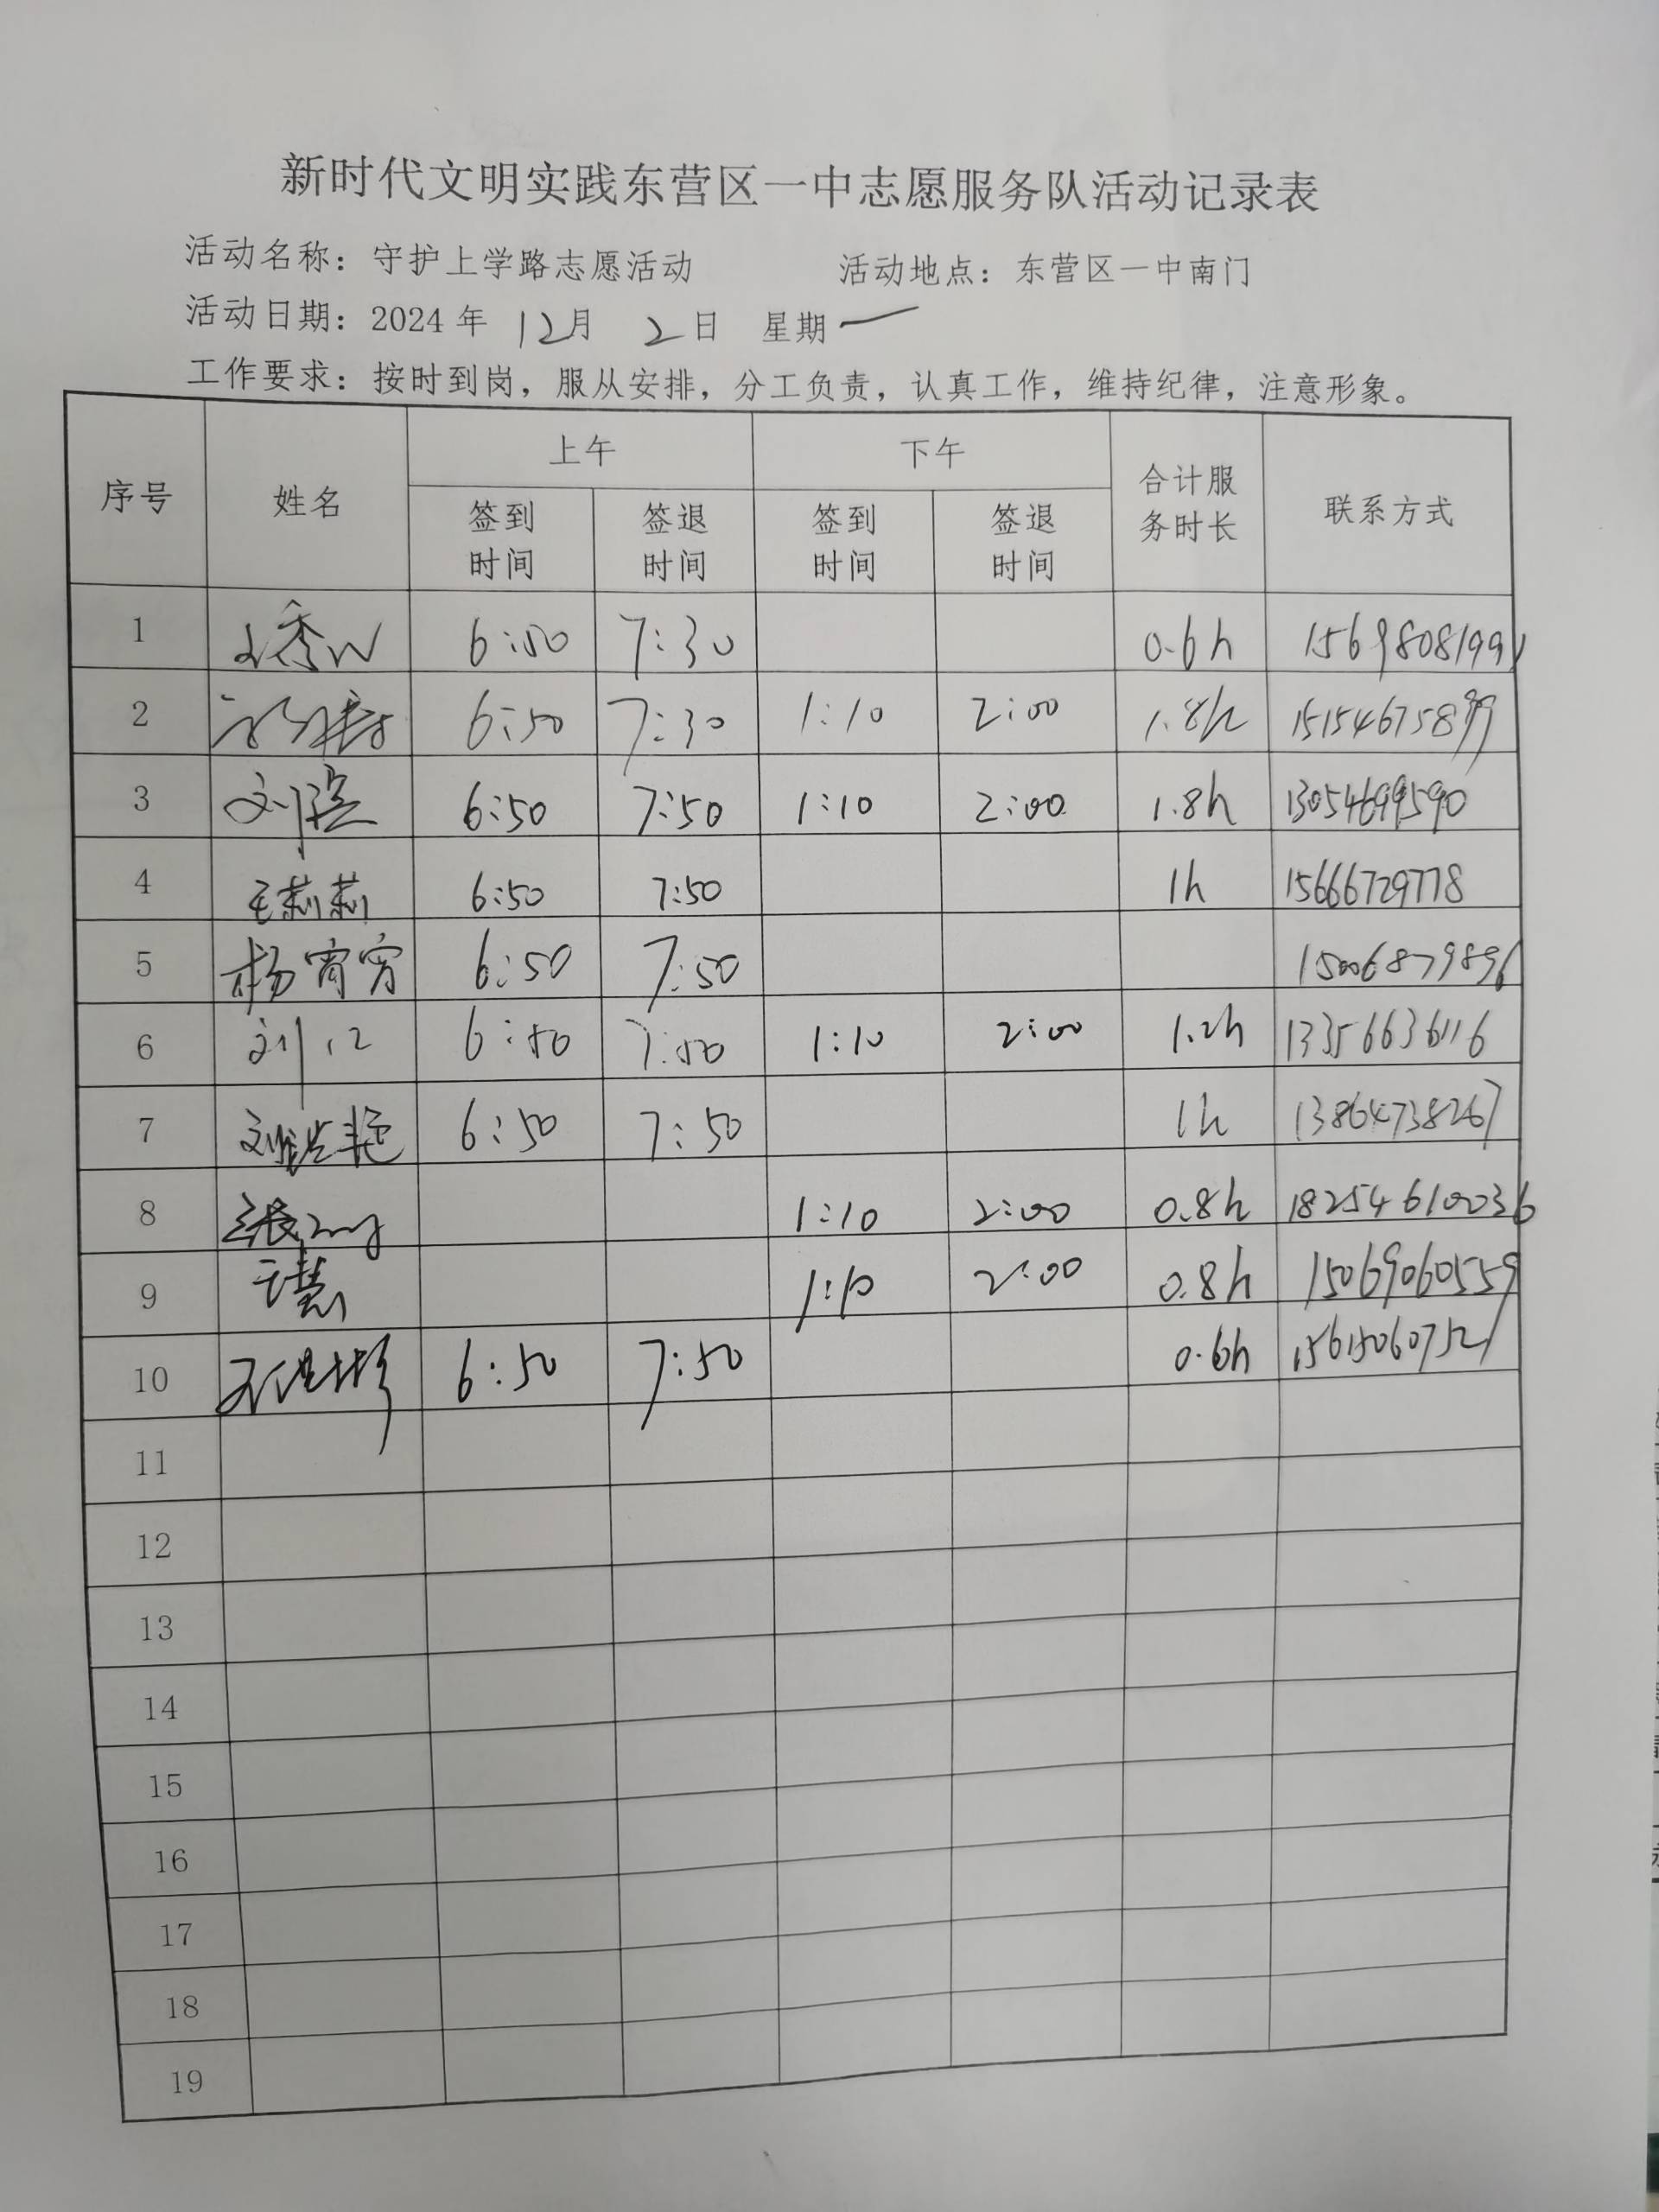 新时代文明实践东营区一中志愿服务队活动记录表
活动名称：守护上学路志愿活动 活动地点：东营区一中南门
活动日期：2024 年 12月 2日 星期一
工作要求：按时到岗，服从安排，分工负责，认真工作，维持纪律，注意形象。
序号 姓名 上午 下午 合计服务时长 联系方式
签到时间 签退时间 签到时间 签退时间
1 6:50 7:30 0.6h
2 6:50 7:30 1:10 2:00 1.8h 15154675899
3 6:50 7:50 1:10 2:00 1.8h
4 王莉莉 6:50 7:50 1h 15666729778
5 杨宵宵 6:50 7:50 15006879896
6 6:50 7:50 1:10 2:00 1.2h 13356636116
7 6:50 7:50 1h 13864738267
8 1:10 2:00 0.8h 18254610036
9 1:10 2:00 0.8h 15069060559
10 6:50 7:50 0.6h 15615060752
11
12
13
14
15
16
17
18
19